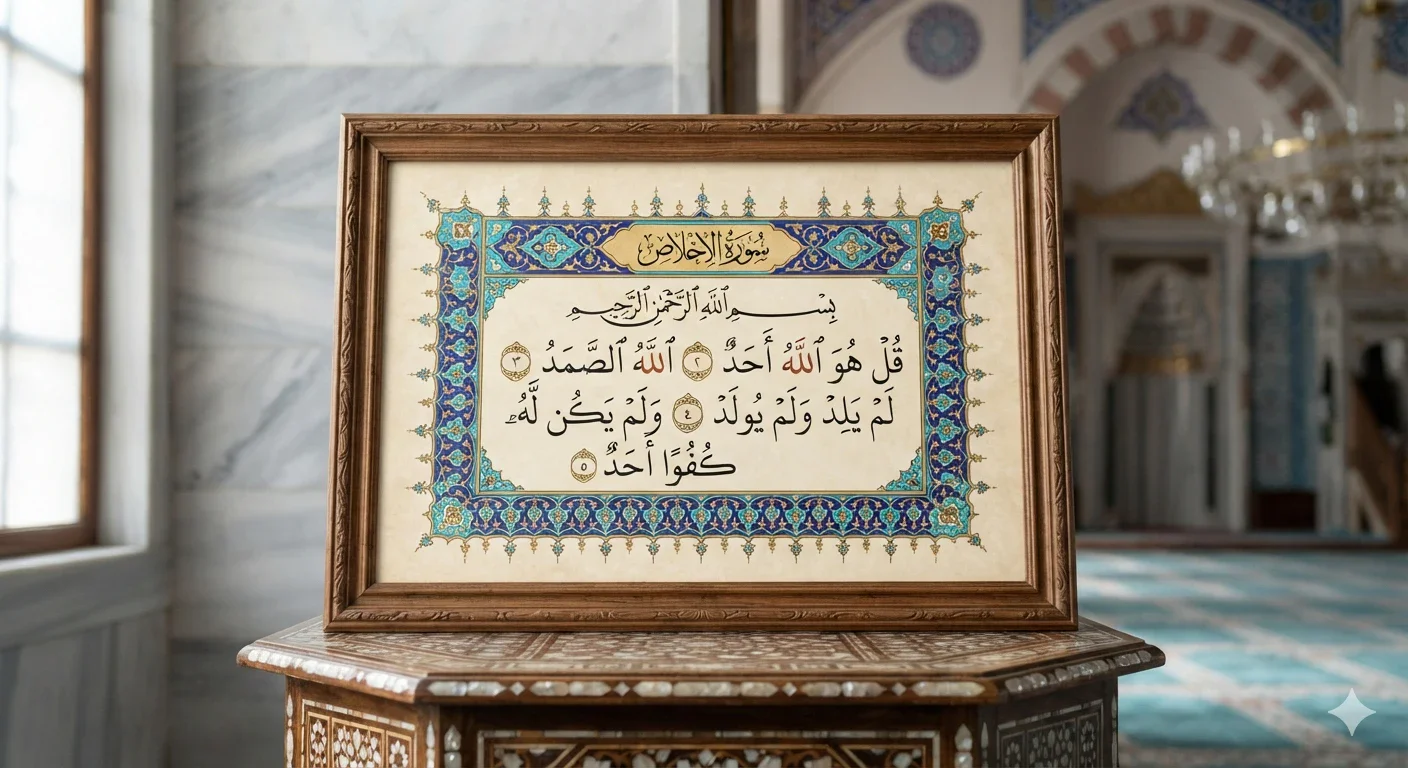 سُورَةُ الْإِخْلَاصِ
بِسْمِ ٱللَّهِ ٱلرَّحْمَٰنِ ٱلرَّحِيمِ
قُلْ هُوَ ٱللَّهُ أَحَدٌ ٢ ٱللَّهُ ٱلصَّمَدُ ٣
لَمْ يَلِدْ وَلَمْ يُولَدْ ٤ وَلَمْ يَكُن لَّهُۥ
كُفُوًا أَحَدٌ ٥